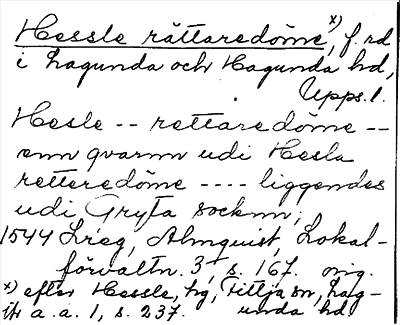 Hessle rättaredöme, x) f. rd
i Lagunda och Hagunda hd,
Upps. l.
Hesle -- rettaredöme --
enn qvarnn udi Hesla
retteredöme ---- liggendes
udi Gryta socknn;
1544 Lreg, Almquist, Lokal-
förvaltn. 3, s. 167. orig.
x) efter Hessle, hg, Fittja sn, Lag-
jfr a. a. 1, s. 237. unda hd